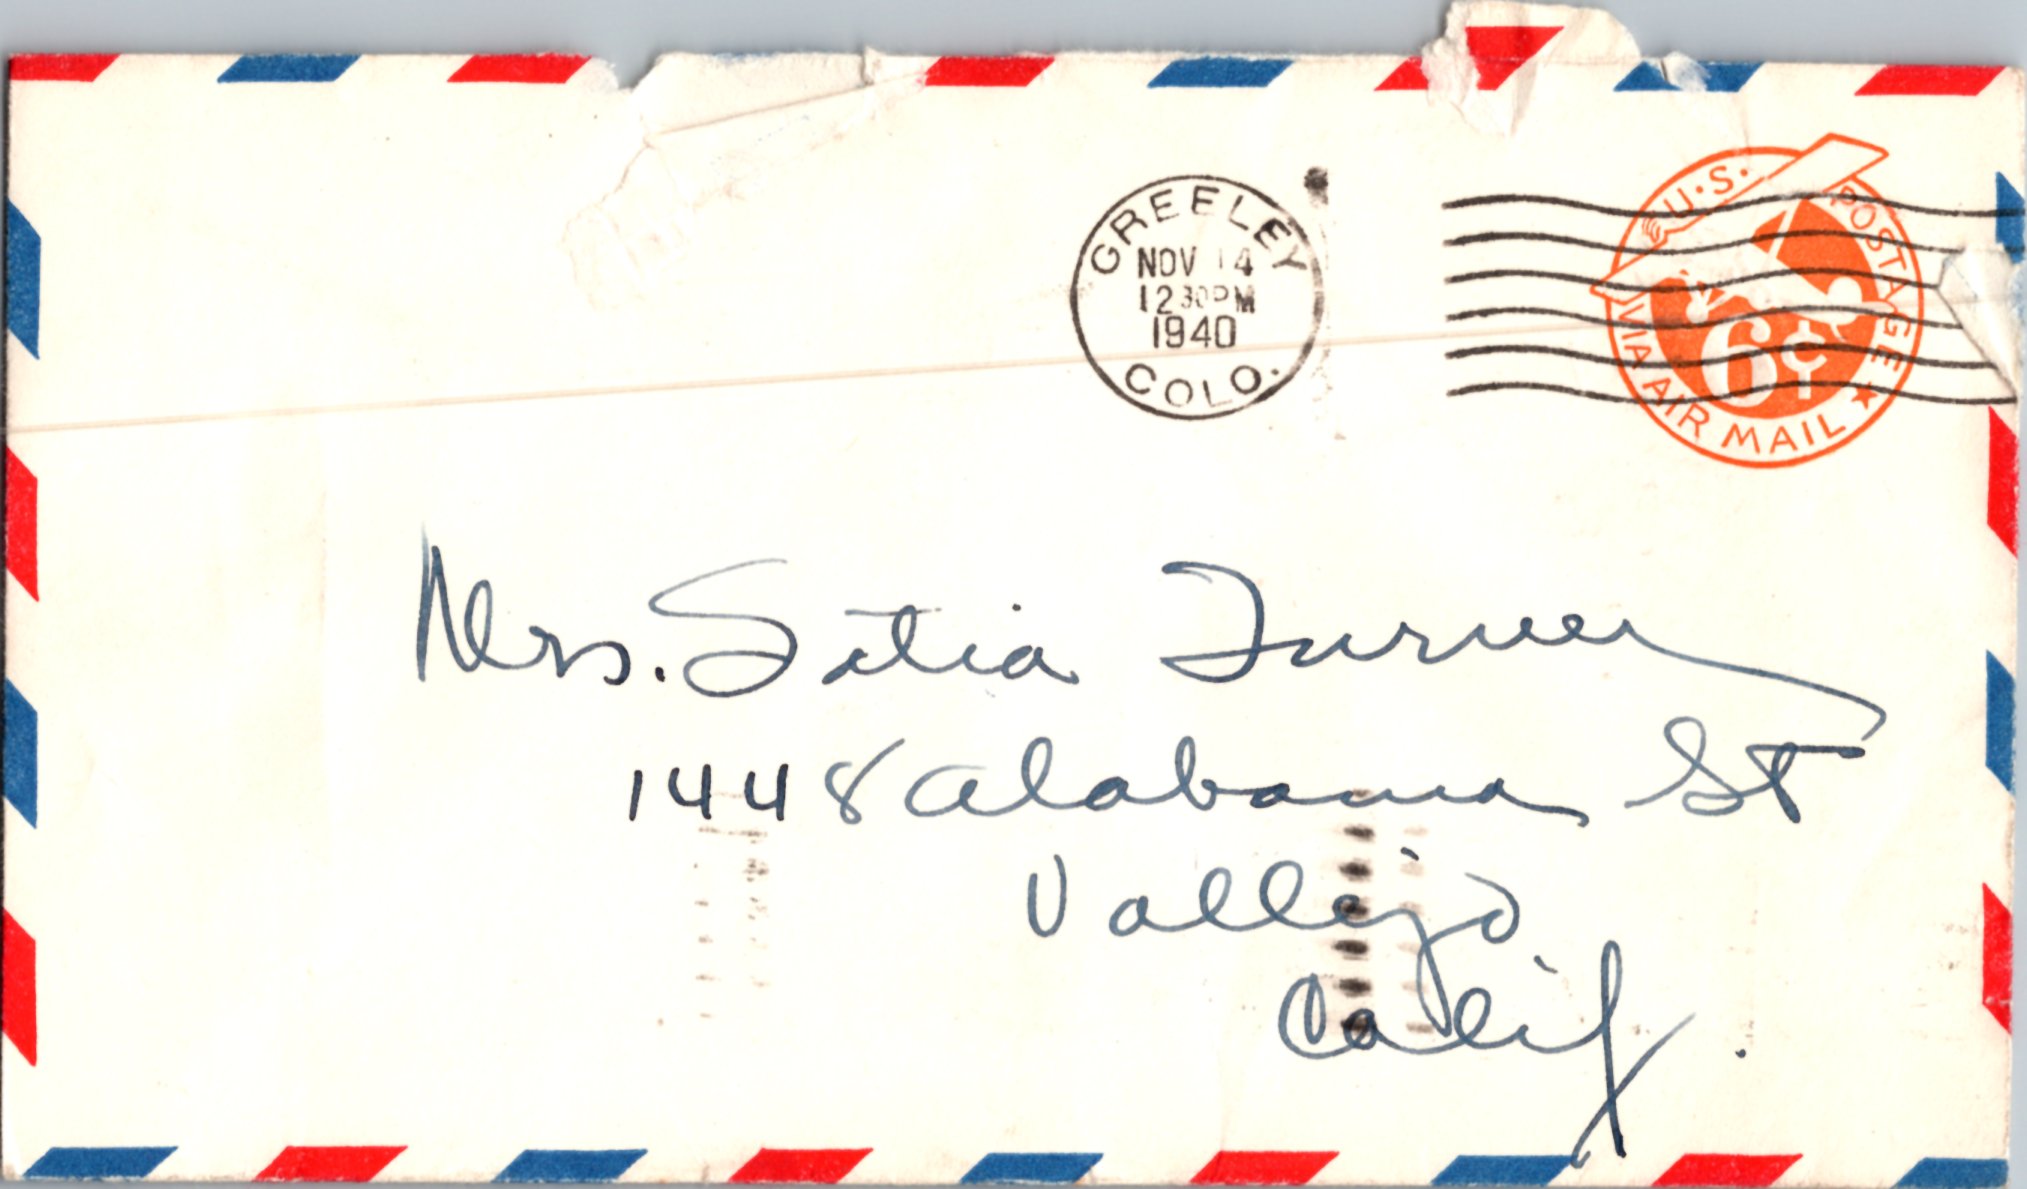 GREELEY
NOV 14
12 30 PM
1940
COLO.
U·S· POSTAGE
VIA AIR MAIL
6¢
Mrs. Turner
1448 Alabama St
Vallejo
Calif.